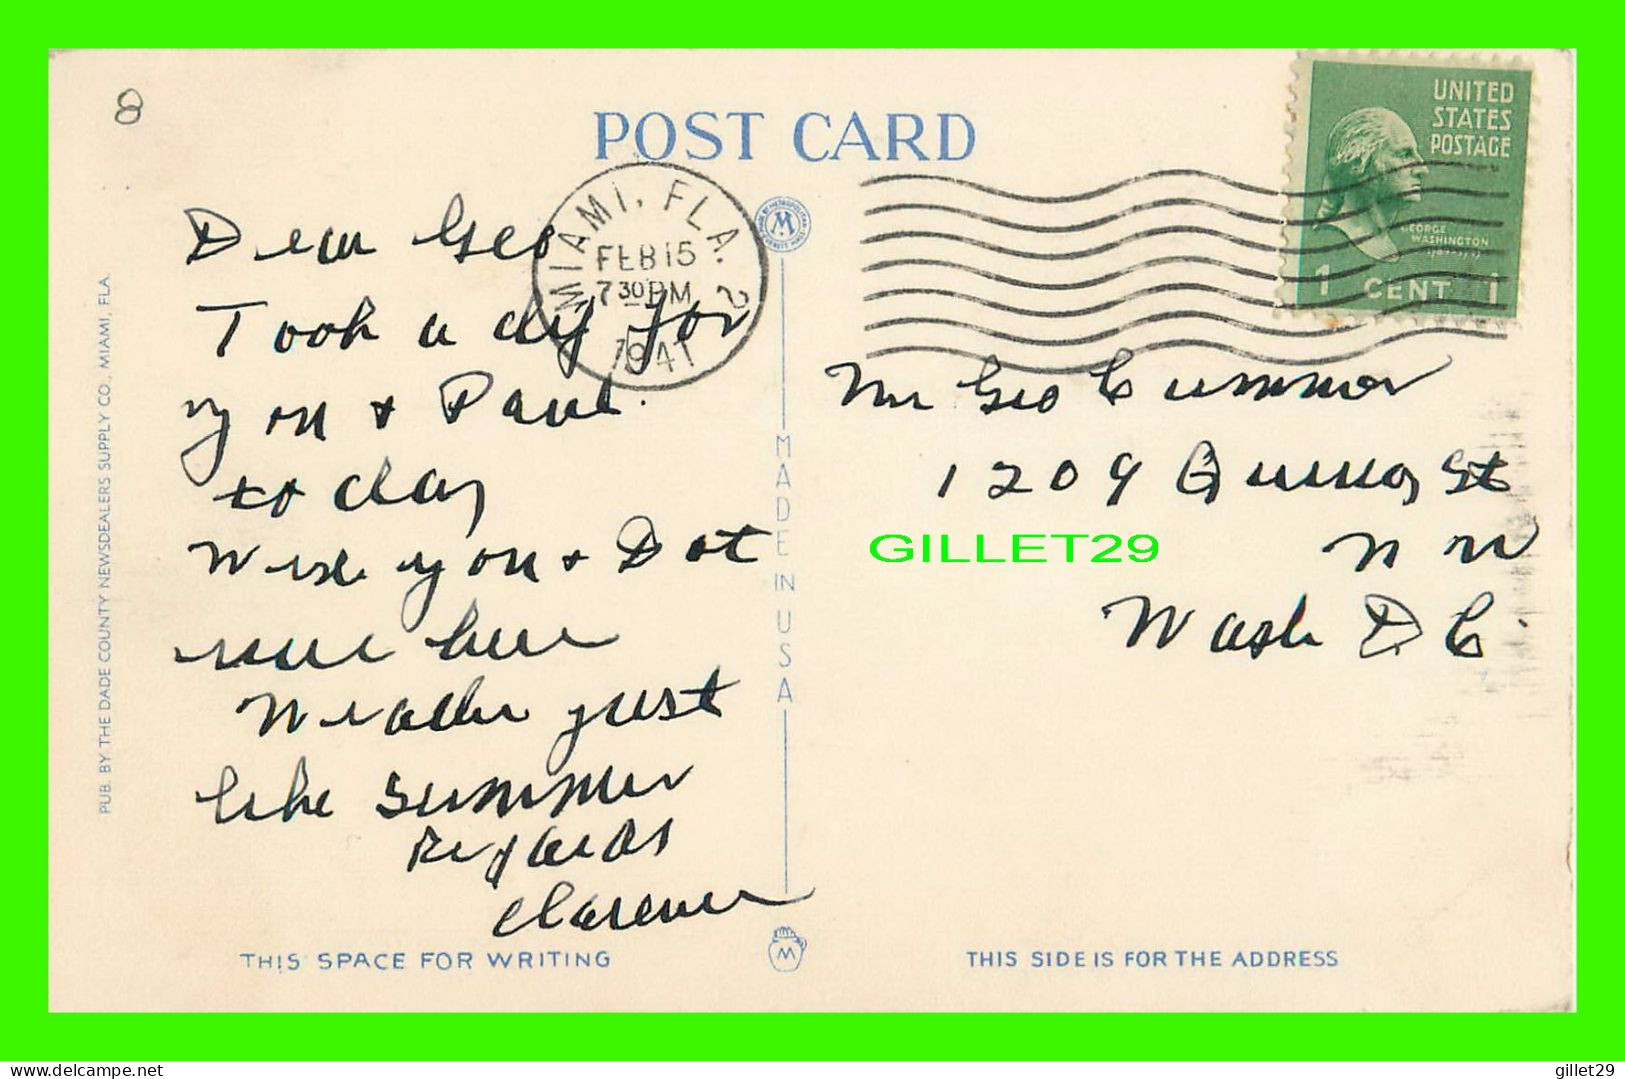 8
POST CARD
UNITED
STATES
POSTAGE
GEORGE
WASHINGTON
1 CENT 1
MIAMI, FLA. 2
FEB 15
7 30 PM
1941
Dear Geo
Took a dip for
you & Paul.
to day
Wish you & Dot
were here
Weather just
like summer
Regards
Clarence
Mr Geo Cummor
1209 St
N W
Wash D C.
MADE IN USA
PUB. BY THE DADE COUNTY NEWSDEALERS SUPPLY CO., MIAMI, FLA.
M
M
THIS SPACE FOR WRITING
THIS SIDE IS FOR THE ADDRESS
GILLET29
www.delcampe.net
gillet29